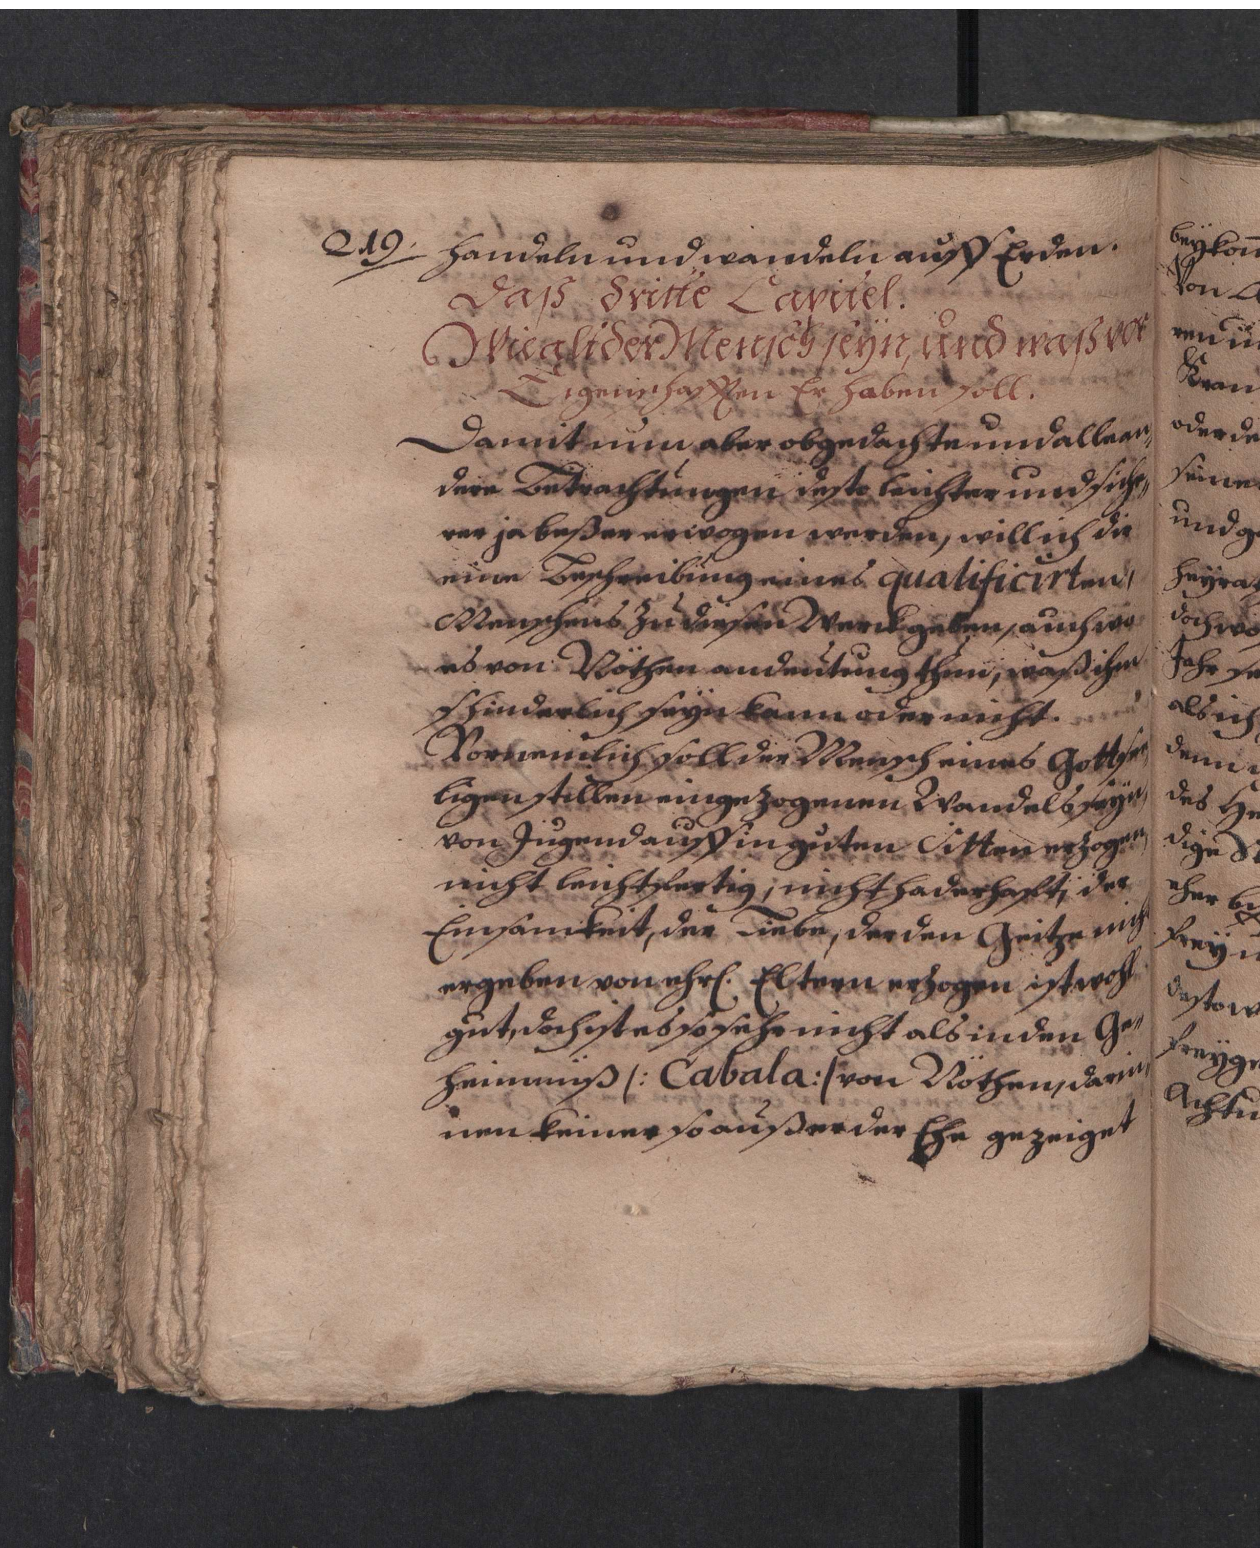 219. handeln und wandeln auff Erden.
Daß dritte Capitel.
Mensch seyn, und waß vor
Eigenschafften Er haben soll.
Damit nun aber obgedachte und alle an,
dere Betrachtungen desto leichter und siche,
rer ja beßer erwogen werden, will ich dir
eine Beschreibung eines qualificirten,
Menschens zu diesen Werck geben, auch wo
es von Nöthen andeutung thun, waß ihm
hinderlich seyn kann oder nicht.
Vornemlich soll der Mensch eines Gottse,
ligen stillen eingezogenen Wandels seyn,
von Jugend auff in guten Sitten erzogen,
nicht leichtfertig, nicht haderhafft, der
Einsamkeit, der Liebe, der den Geitze nicht
ergeben von ehrl. Eltern erzogen ist wohl
gut, doch ist es so sehr nicht als in den Ge,,
heimnüß /: Cabala :/ von Nöthen, darin,
nen keiner so außer der Ehe gezeiget
beykom
Von
ren
oder de
seine
und ge
heyrat
doch wo
Jahr se
als ich
denn
des He
dige
eher
frey
desto w
freyge
Achtu